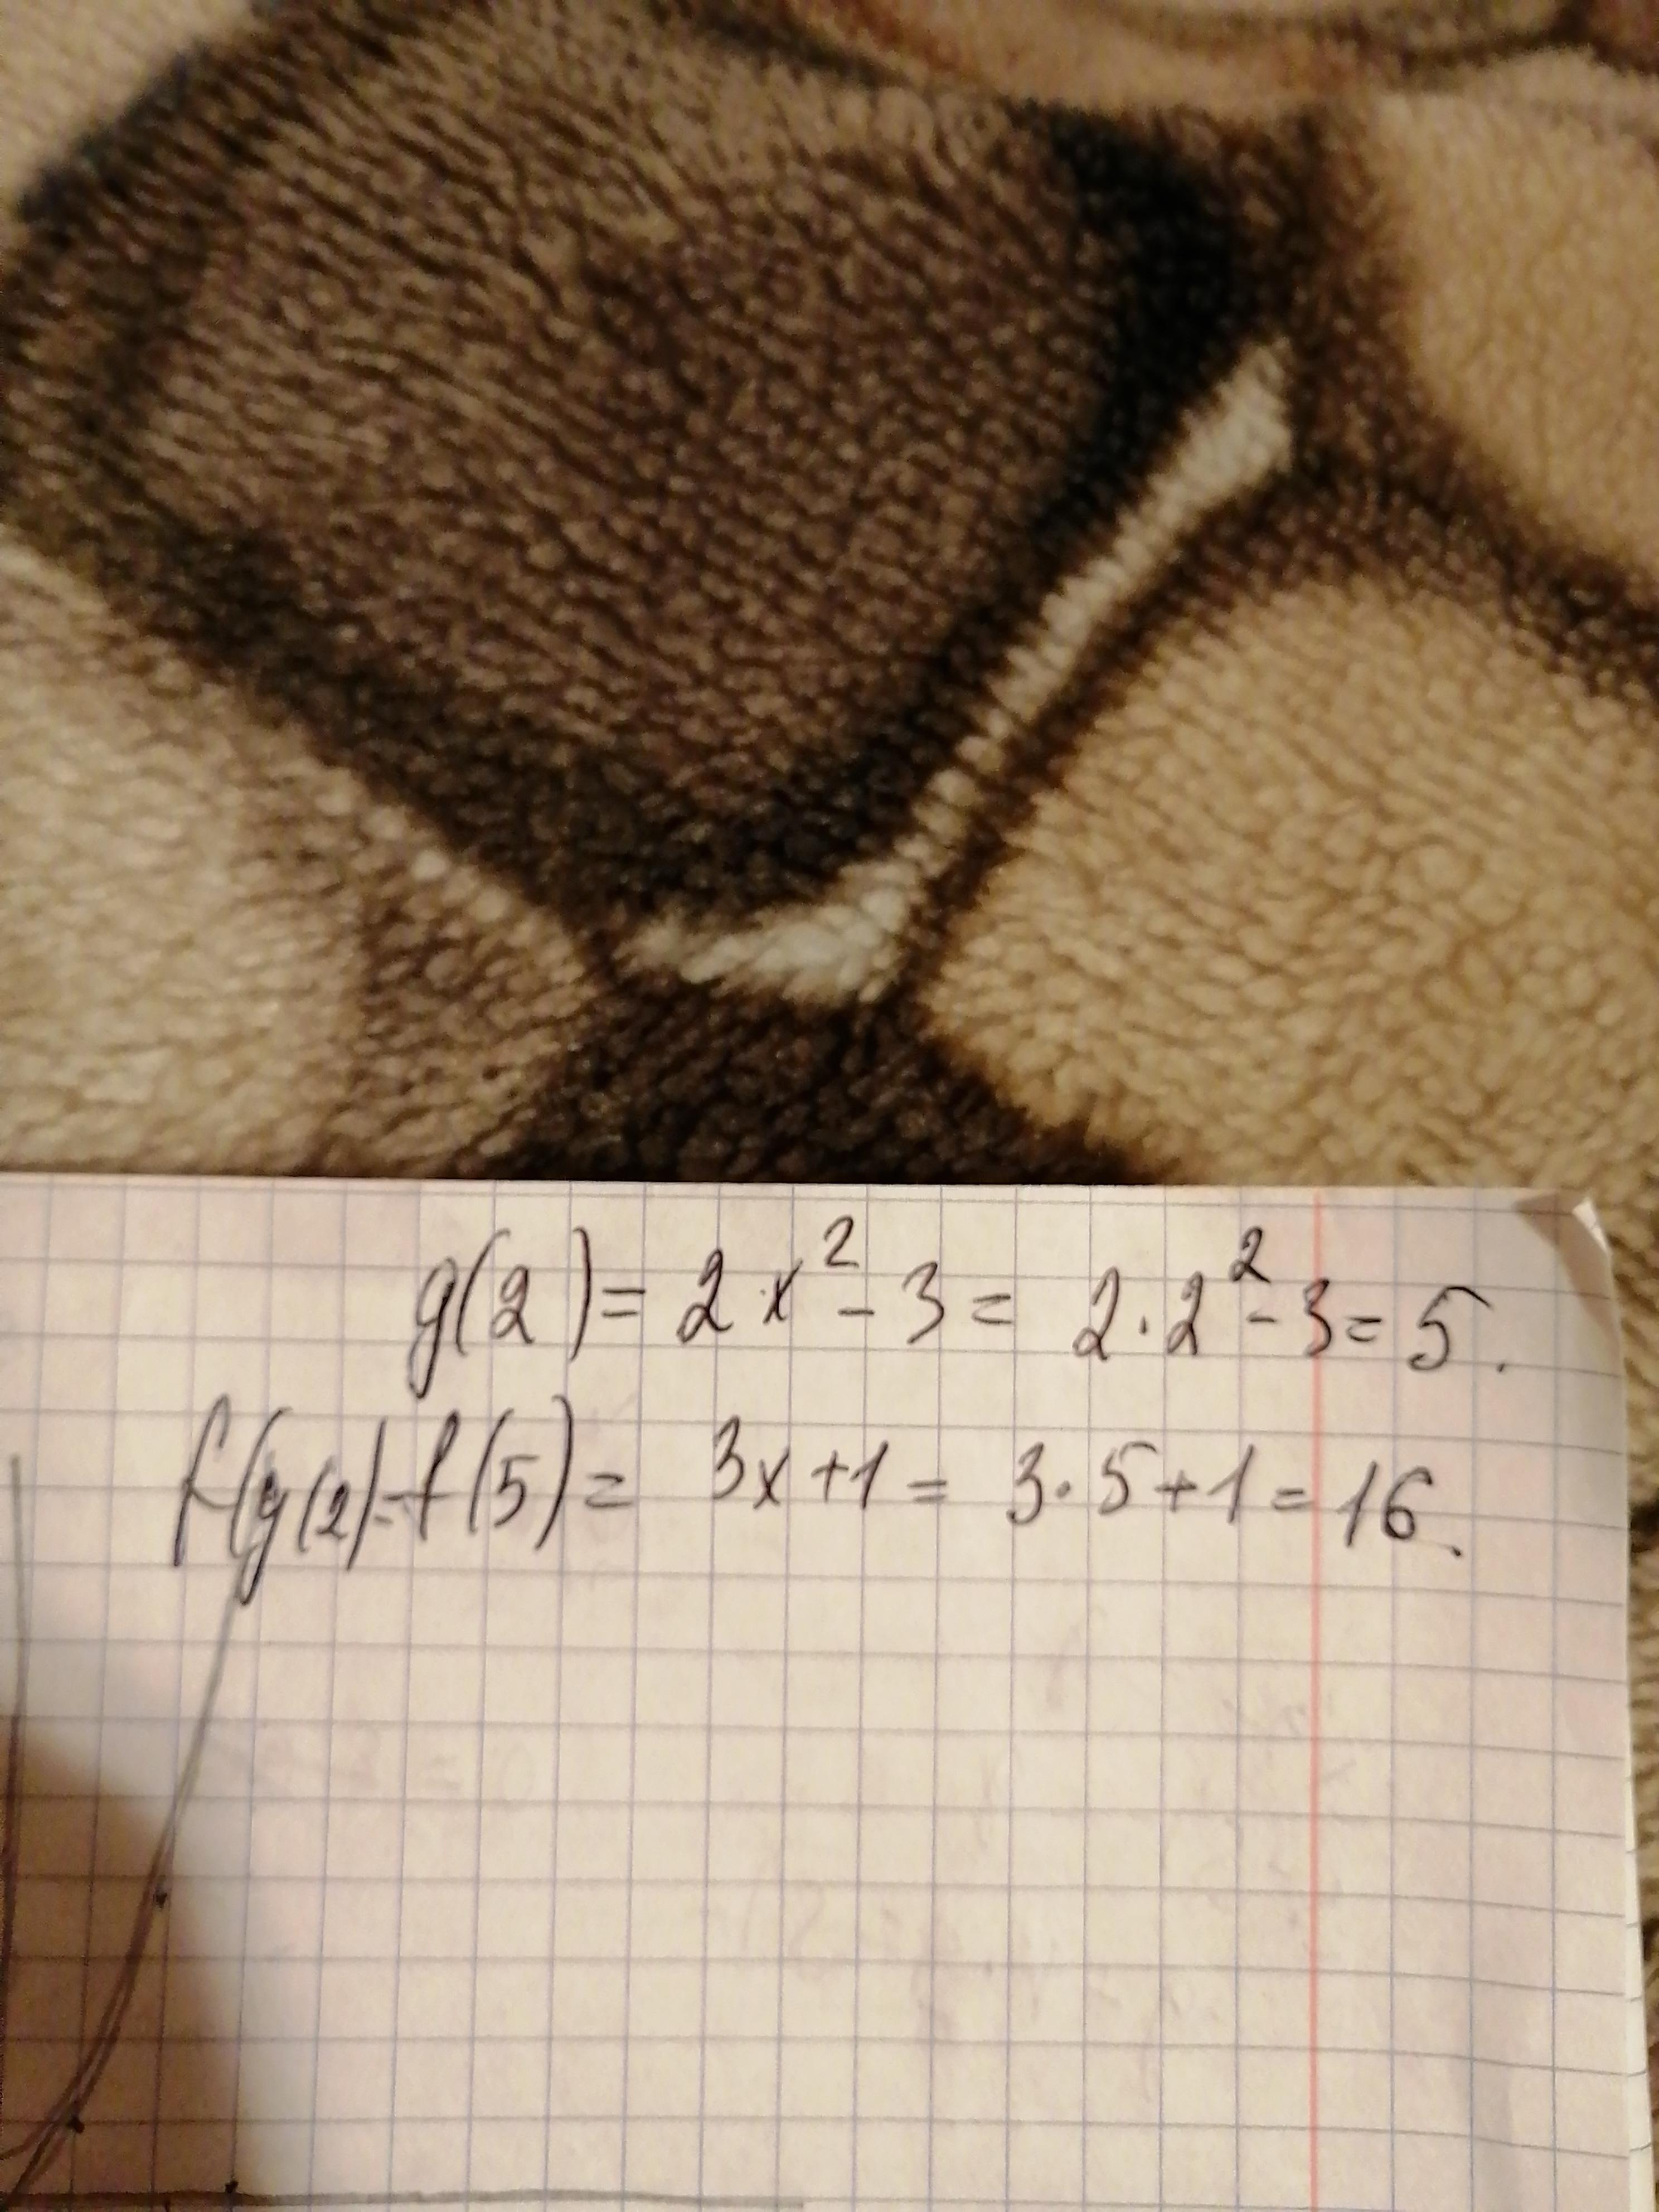 g(2) = 2x² - 3 = 2·2² - 3 = 5.
f(g(2) = f(5) = 3x + 1 = 3·5 + 1 = 16.